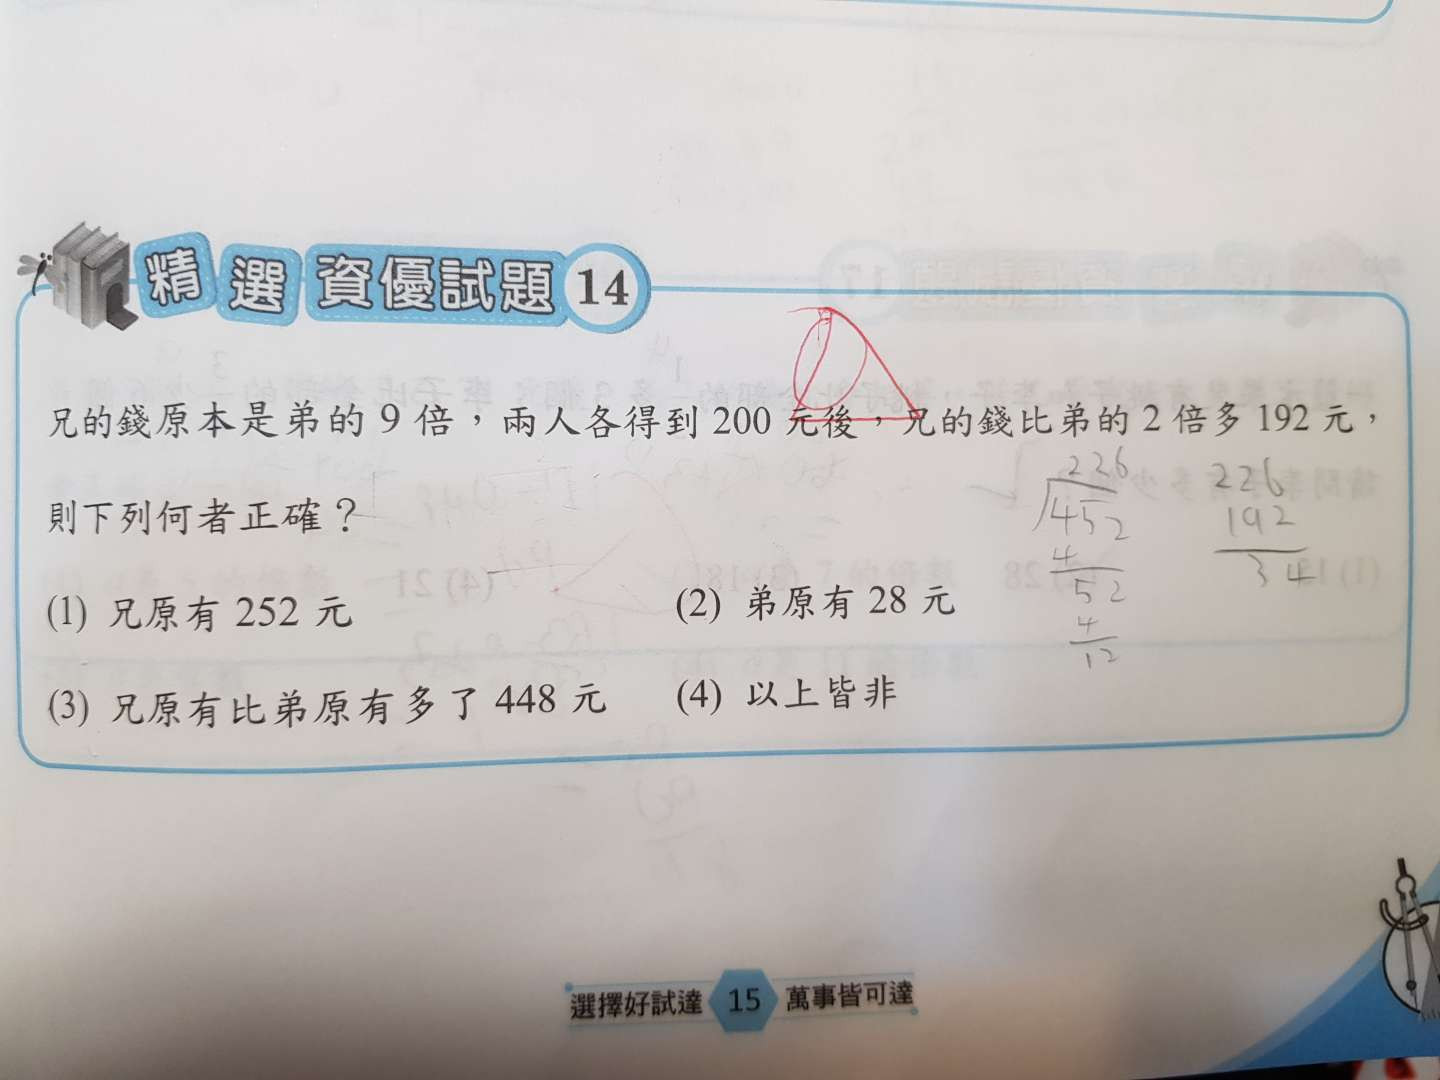 精選資優試題 14
兄的錢原本是弟的 9 倍,兩人各得到 200 元後,兄的錢比弟的 2 倍多 192 元,
則下列何者正確?
(1) 兄原有 252 元
(2) 弟原有 28 元
(3) 兄原有比弟原有多了 448 元
(4) 以上皆非
226
452
4
52
4
12
226
192
34
選擇好試達 15 萬事皆可達